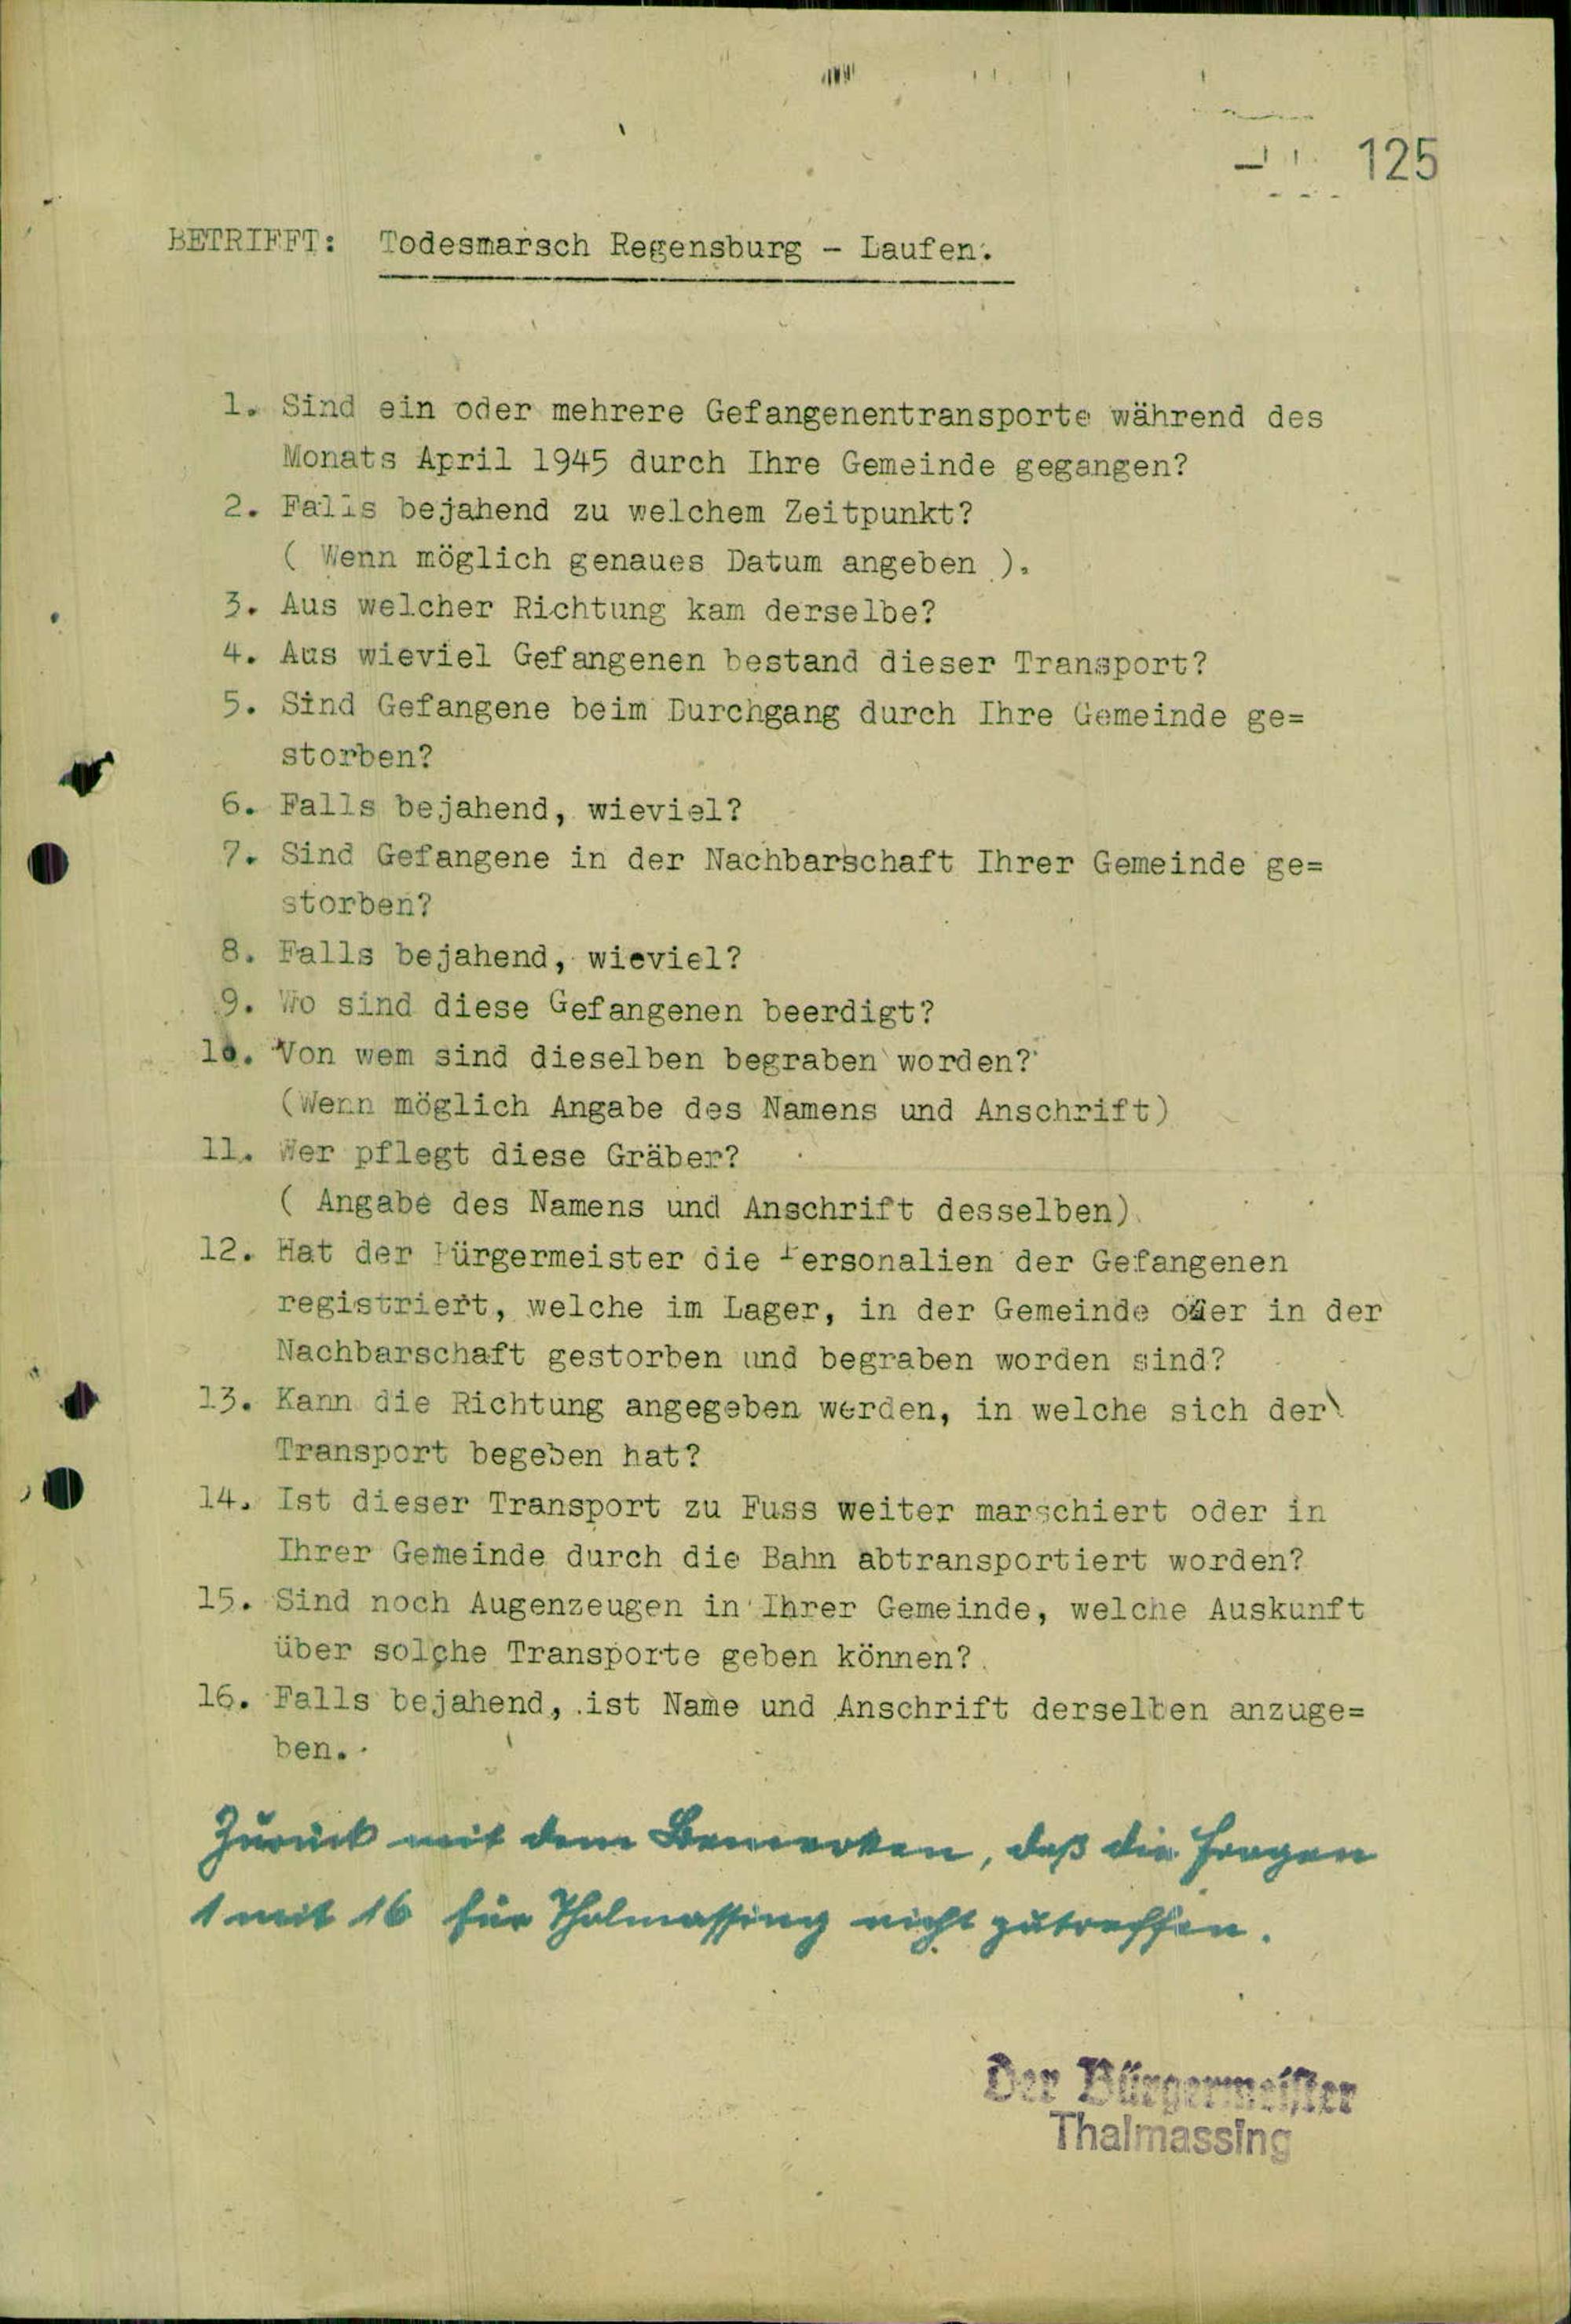 125
BETRIFFT: Todesmarsch Regensburg - Laufen.
1. Sind ein oder mehrere Gefangenentransporte während des
Monats April 1945 durch Ihre Gemeinde gegangen?
2. Falls bejahend zu welchem Zeitpunkt?
( Wenn möglich genaues Datum angeben ).
3. Aus welcher Richtung kam derselbe?
4. Aus wieviel Gefangenen bestand dieser Transport?
5. Sind Gefangene beim Durchgang durch Ihre Gemeinde ge=
storben?
6. Falls bejahend, wieviel?
7. Sind Gefangene in der Nachbarschaft Ihrer Gemeinde ge=
storben?
8. Falls bejahend, wieviel?
9. Wo sind diese Gefangenen beerdigt?
10. Von wem sind dieselben begraben worden?
(Wenn möglich Angabe des Namens und Anschrift)
11. Wer pflegt diese Gräber?
( Angabe des Namens und Anschrift desselben)
12. Hat der Bürgermeister die Personalien der Gefangenen
registriert, welche im Lager, in der Gemeinde oder in der
Nachbarschaft gestorben und begraben worden sind?
13. Kann die Richtung angegeben werden, in welche sich der
Transport begeben hat?
14. Ist dieser Transport zu Fuss weiter marschiert oder in
Ihrer Gemeinde durch die Bahn abtransportiert worden?
15. Sind noch Augenzeugen in Ihrer Gemeinde, welche Auskunft
über solche Transporte geben können?
16. Falls bejahend, ist Name und Anschrift derselben anzuge=
ben.
Zurück mit dem Bemerken, daß die Fragen
1 mit 16 für Thalmassing nicht zutreffen.
Der Bürgermeister
Thalmassing